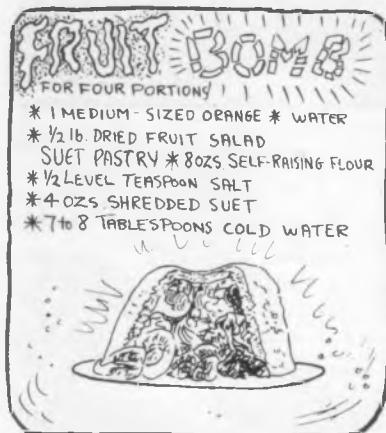 FRUIT BOMB
FOR FOUR PORTIONS
* 1 MEDIUM-SIZED ORANGE * WATER
* 1/2 lb. DRIED FRUIT SALAD
SUET PASTRY * 8OZS SELF-RAISING FLOUR
* 1/2 LEVEL TEASPOON SALT
* 4 OZS SHREDDED SUET
* 7 to 8 TABLESPOONS COLD WATER